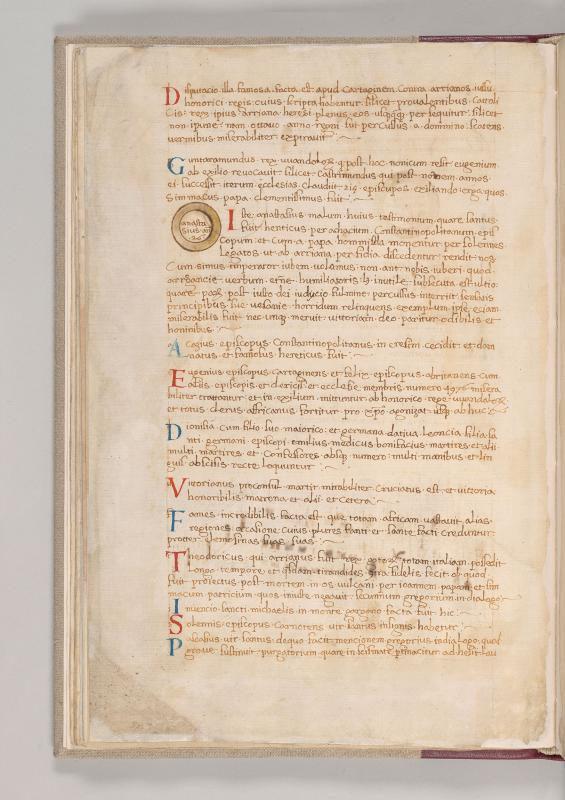 Disputacio illa famosa facta est apud Cartaginem contra arrianos iussu
honorici regis cuius scripta habentur scilicet prevalentibus Catoli
cis rex ipius arriana heresi plenus eos usque per sequitur scilicet
non ipune nam ottavo anno regni sui percussus a domino scatens
vermibus miserabiliter expiravit
Guntaramundus rex vuandalorum post hoc nonicum resit eugenium
ab exilio revocavit scilicet trasimundus qui post novem annos
ei successit iterum ecclesias claudit episcopos exiliando erga quos
Simmacus papa clementissimus fuit
anasta
sius
Iste anastasius malum huius testimonium quare santus
fuit henticus per achacium Constantinopolitanum epis
copum et cum a papa hormisda monentur per solennes
legatos ut ab arriana perfidia discedentur rendit nos
Cum simus imperator iubem volumus non ant nobis iuberi quod
arroancie verbum humiliatoris inutile subsecuta est ultio
quare post iusto dei iudicio fulmine percussus interiit
principibus sue vesanie horridum relinquens exemplum
miserabilis fuit nec meruit vittoriam deo pariter odibilis et
hominibus
Acagius episcopus Constantinopolitanus in eresim cecidit et dam
natus et famosus hereticus fuit
Eugenius episcopus cartaginensis et felix episcopus abritanensis cum
aliis episcopis et clericis et ecclesie membris numero 4976 misera
biliter cruciantur et in exilium mittuntur ab honorico rege vuandalorum
et totus clerus affricanus fortitur pro xpo agonizat usque ab huc
Dionisia cum filio suo maiorico et germana dativa leoncia filia sa
nti germani episcopi emilius medicus bonifacius martires et alii
multi martires et confessores absque numero multi manibus et lin
guis abscisis recte loquuntur
Vittorianus proconsul martir mirabiliter cruciatus est et vittoria
honoribilis matrona et alii et cetera
Fames incredibilis facta est que totam africam vastavit alias
regiones occasione cuius plures santi et sante facti creduntur
propter elemosinas suas
Theodoricus qui arrianus fuit rex gotorum totam italiam possedit
longo tempore et quosdam tirandides contra fidelis fecit ob quod
fuit proiectus post mortem in os vulcani per ioannem papam et sim
macum patricium quos iniuste negavit secunnum gregorium in dialogo
Invencio santi michaelis in monte gargano facta fuit hic
Solennis episcopus Carnotens vir santus insignis habetur
Pascasius vir santus de quo facit mencionem gregorius in dialogo quod
grave sustinuit purgatorium quare in scismate pertinaciter adhesit lau